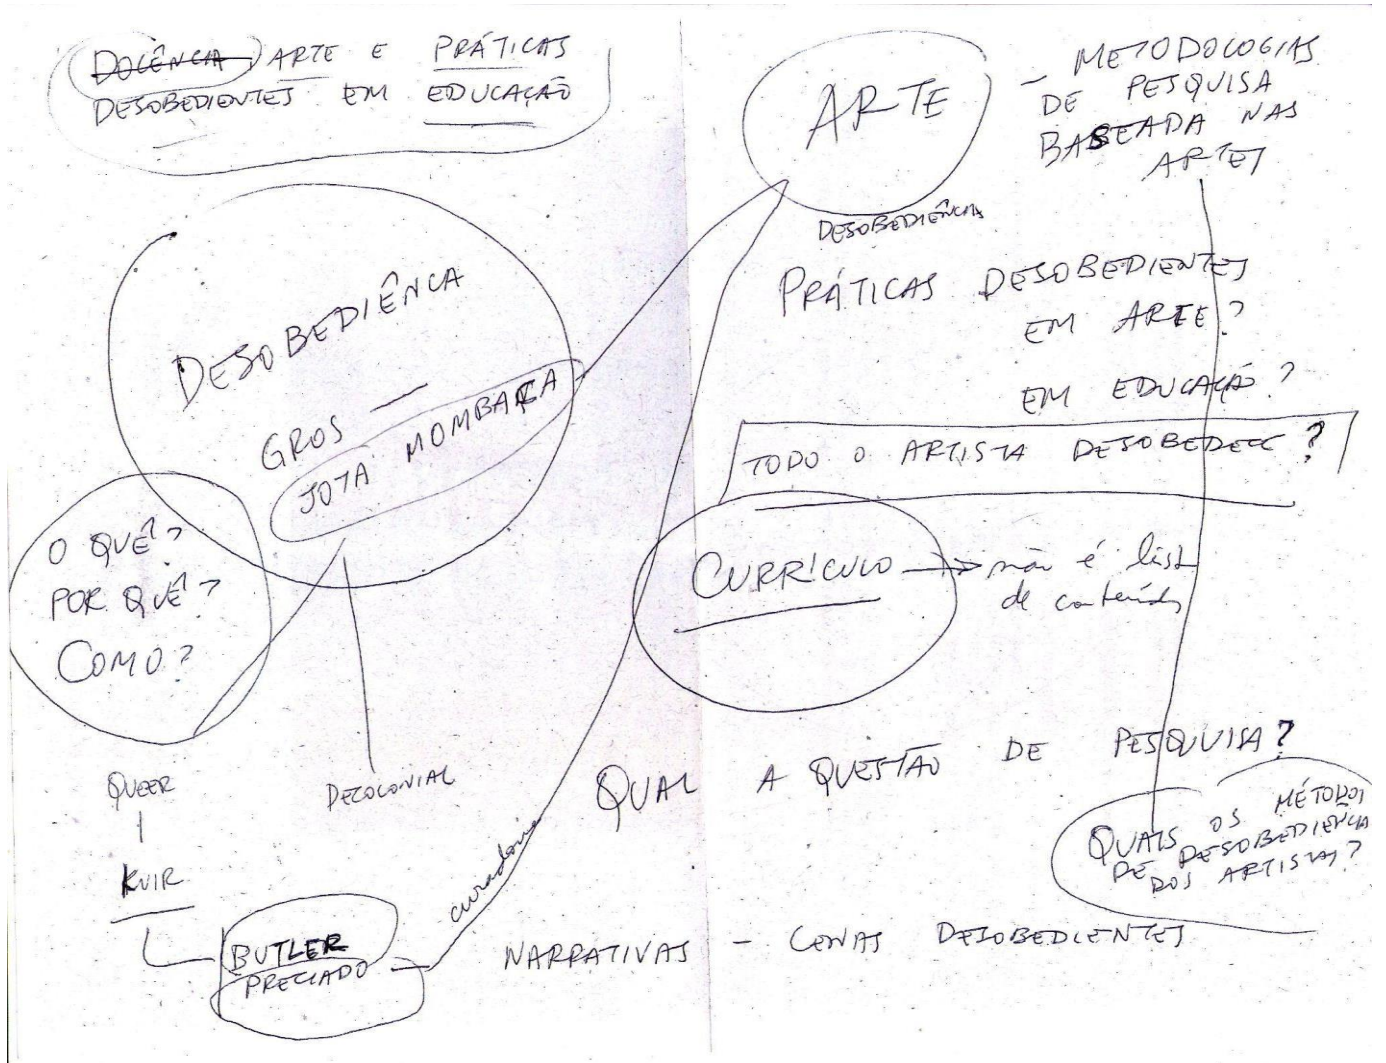 DOCÊNCIA ARTE E PRÁTICAS
DESOBEDIENTES EM EDUCAÇÃO
DESOBEDIÊNCA
GROS —
JOTA MOMBAÇA
O QUÊ?
POR QUÊ?
COMO?
QUEER
KUIR
BUTLER
PRECIADO
DECOLONIAL
curadoria
ARTE
DESOBEDIÊNCIA
- METODOLOGIAS
DE PESQUISA
BASEADA NAS
ARTES
PRÁTICAS DESOBEDIENTES
EM ARTE?
EM EDUCAÇÃO?
TODO O ARTISTA DESOBEDECE?
CURRÍCULO → não é lista
de conteúdos
QUAL A QUESTÃO DE PESQUISA?
QUAIS OS MÉTODOS
DE DESOBEDIÊNCIA
DOS ARTISTAS?
NARRATIVAS - CENAS DESOBEDIENTES